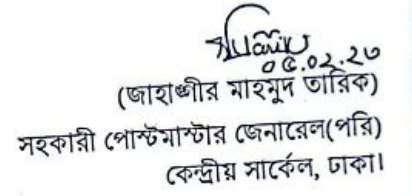 ০৫.০২.২৩
(জাহাঙ্গীর মাহমুদ তারিক)
সহকারী পোস্টমাস্টার জেনারেল(পরি)
কেন্দ্রীয় সার্কেল, ঢাকা।